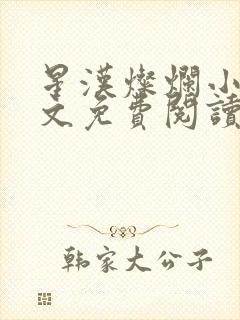 星漢燦爛小
文免費閱讀
韩家大公子